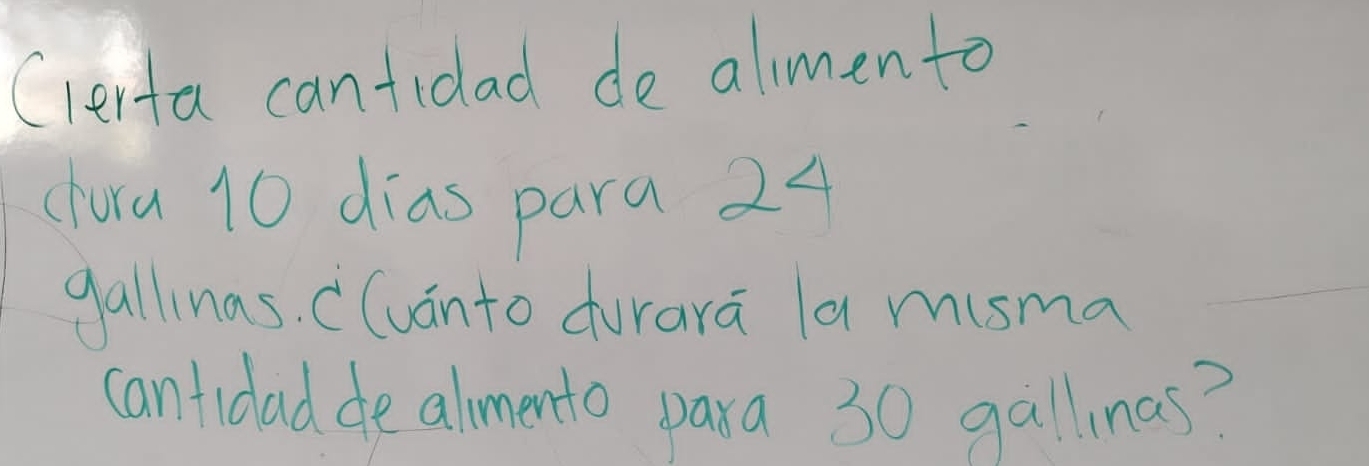 Cierta cantidad de alimento
dura 10 días para 24
gallinas. ¿Cuánto durará la misma
cantidad de alimento para 30 gallinas?